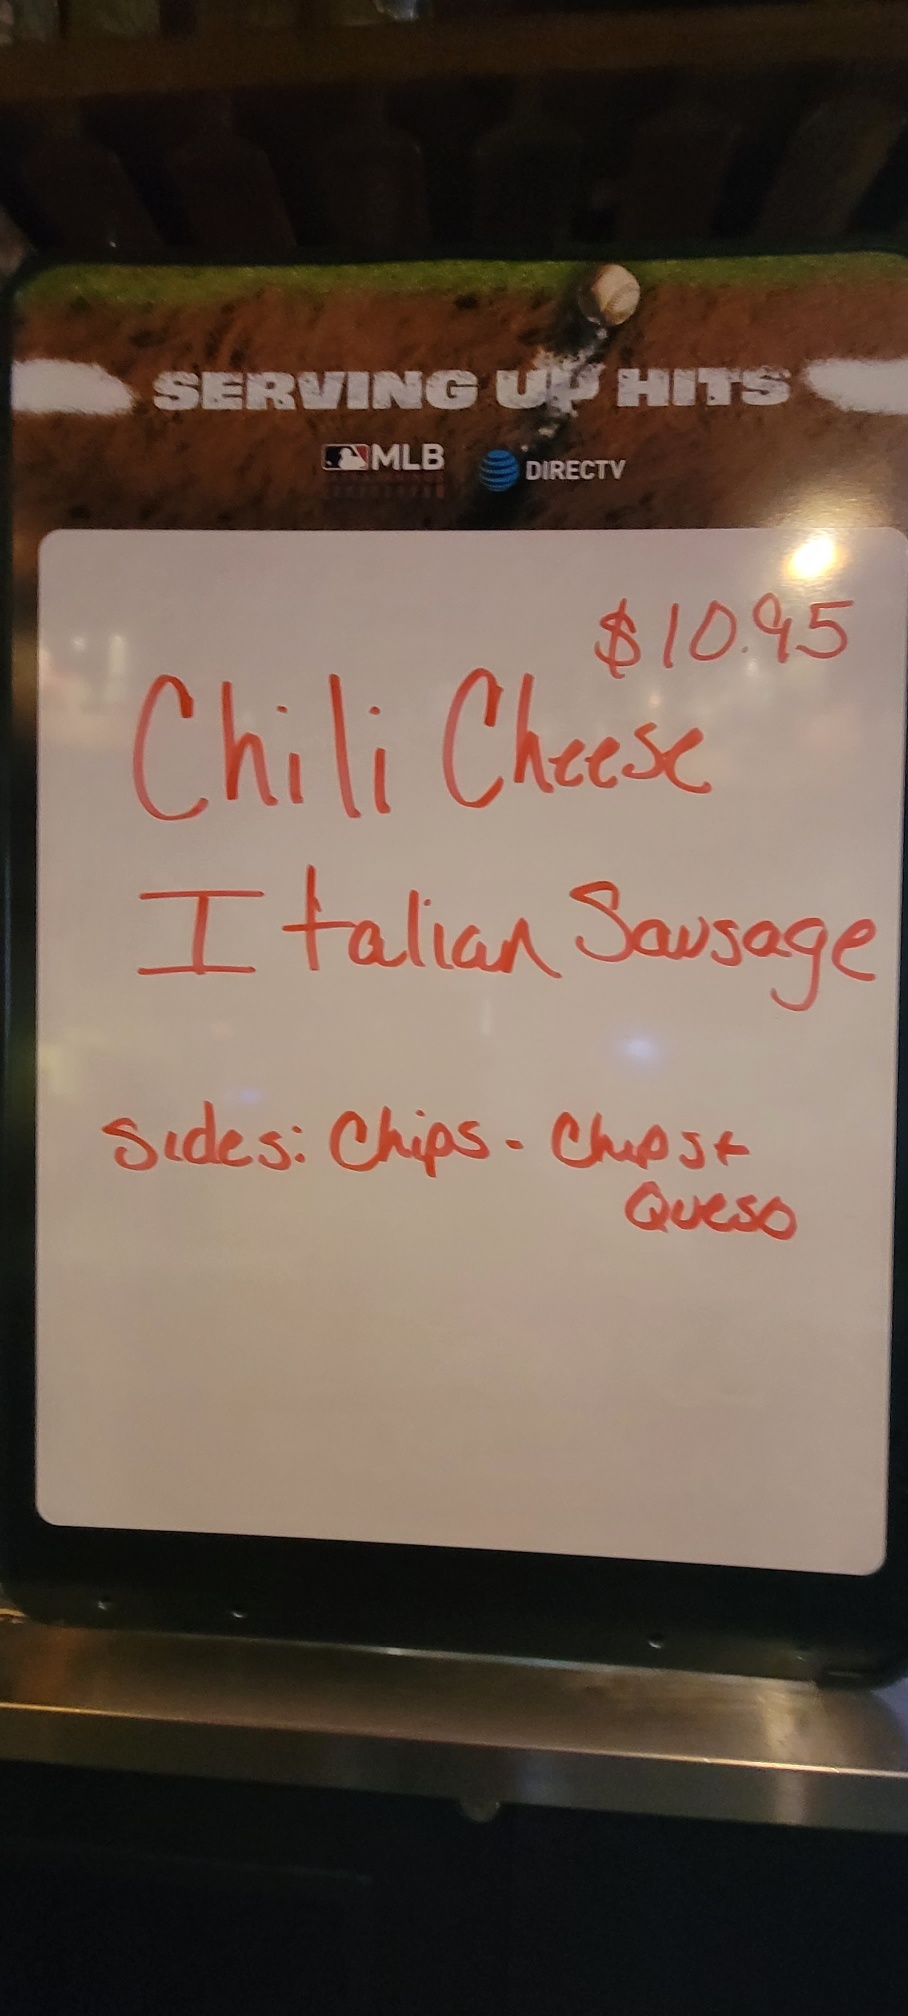 SERVING UP HITS
MLB DIRECTV
$10.95
Chili Cheese
Italian Sausage
Sides: Chips - Chips +
Queso